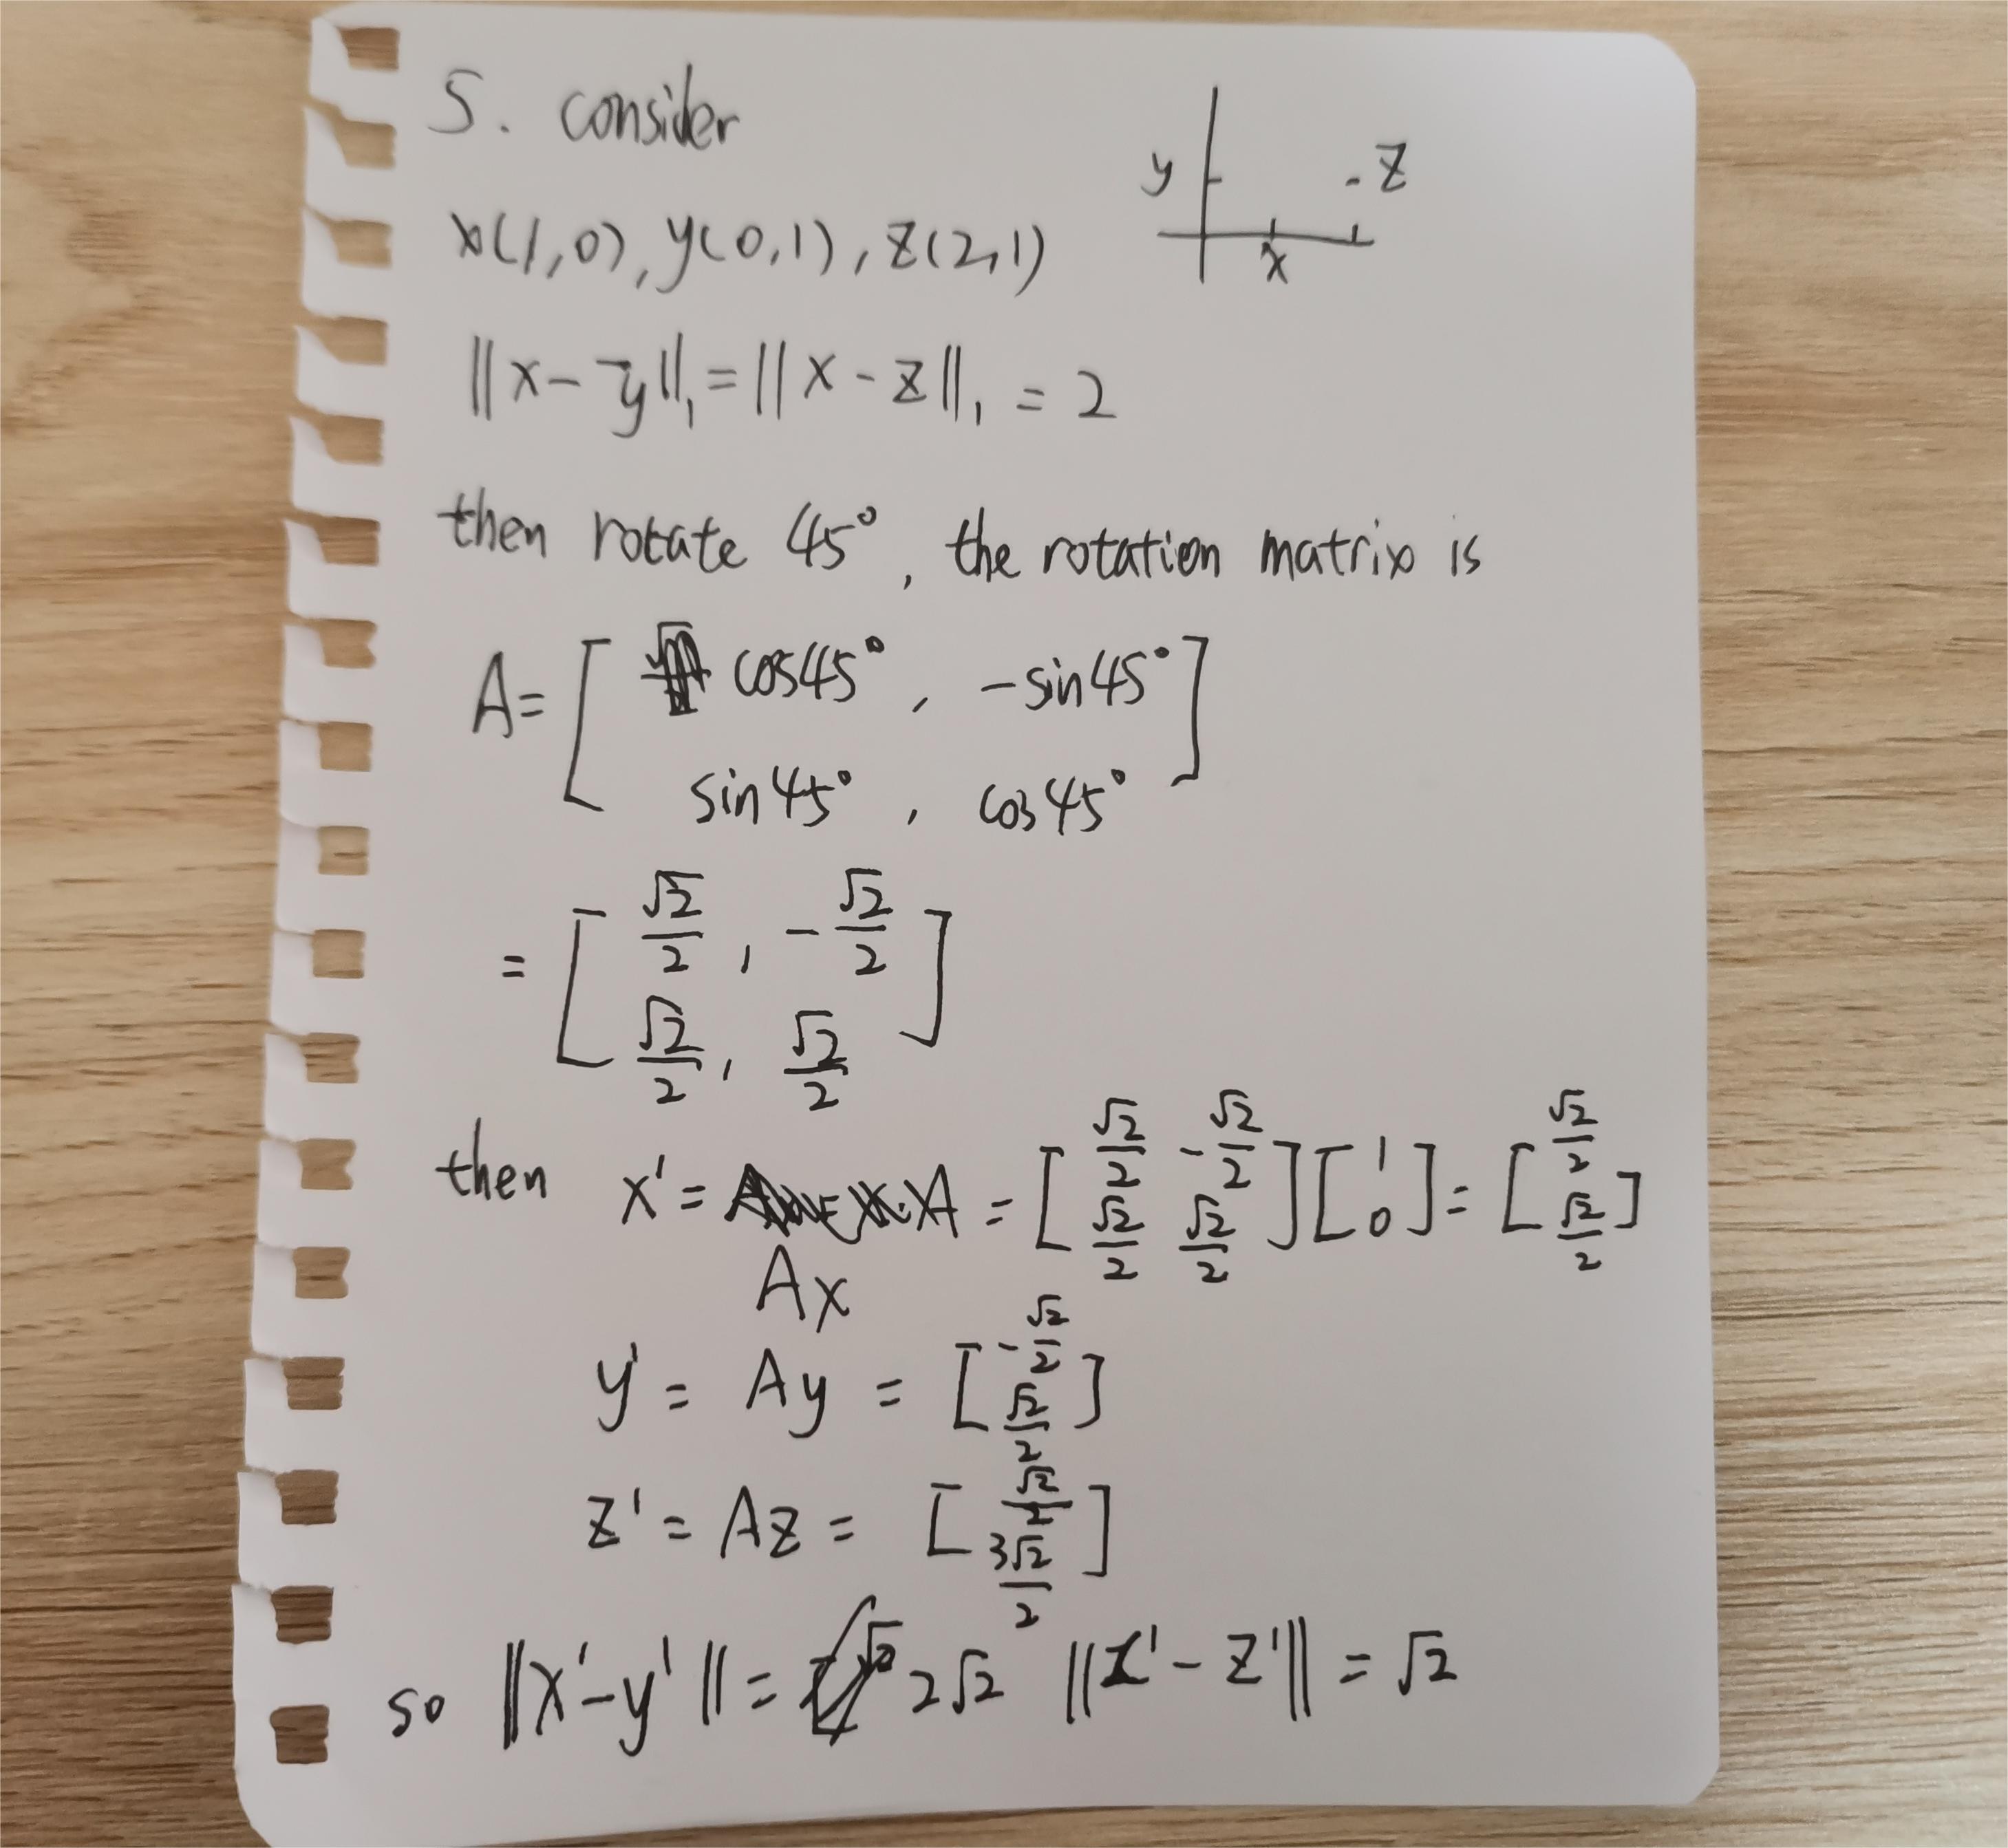 5. consider
x(1,0), y(0,1), z(2,1)
y
z
x
||x-y||₁ = ||x-z||₁ = 2
then rotate 45°, the rotation matrix is
A = [ cos45°, -sin45°
sin45°, cos45° ]
= [ √2/2, -√2/2
√2/2, √2/2 ]
then x' = Ax = [ √2/2 -√2/2 √2/2 √2/2 ] [ 1 0 ] = [ √2/2 √2/2 ]
y' = Ay = [ -√2/2 √2/2 ]
z' = Az = [ √2/2 3√2/2 ]
so ||x'-y'|| = 2√2 ||x'-z'|| = √2